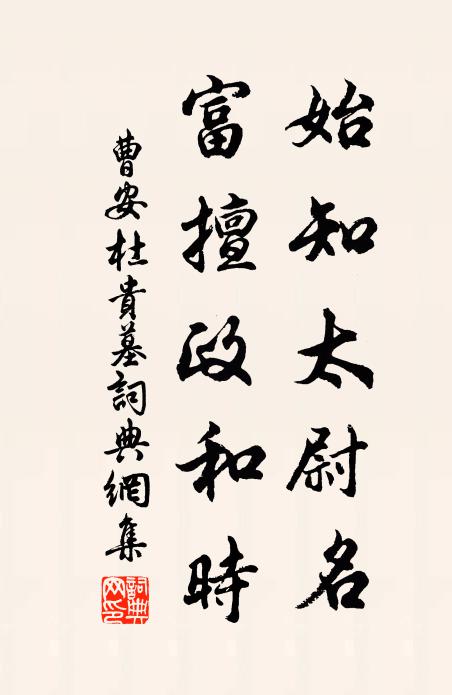 始知太尉名
富擅政和時
曹安杜貴墓詞典網集
詞典
网印